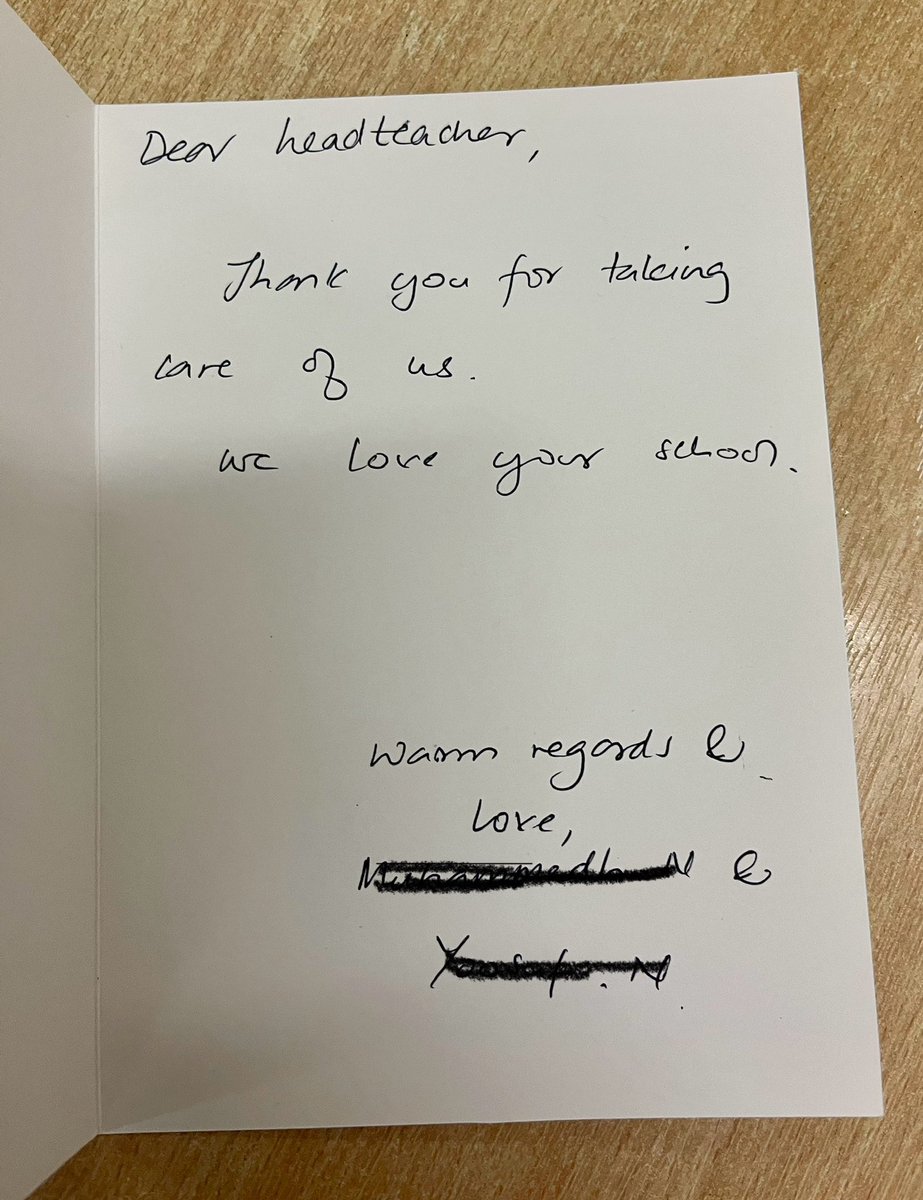 Dear headteacher,
Thank you for taking
care of us.
we love your school.
Warm regards &
love,
&